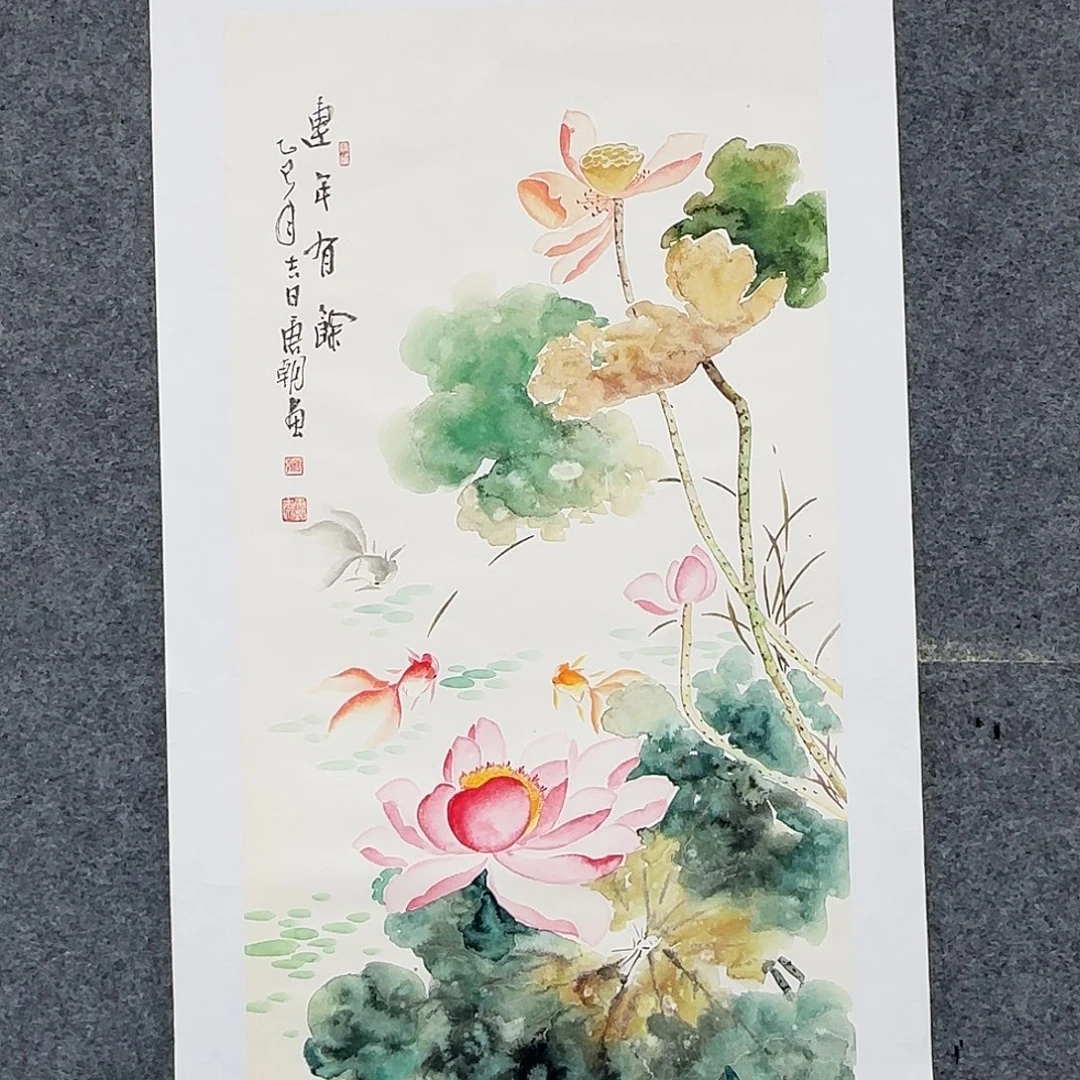 連年有餘
乙巳月吉日唐朝畫